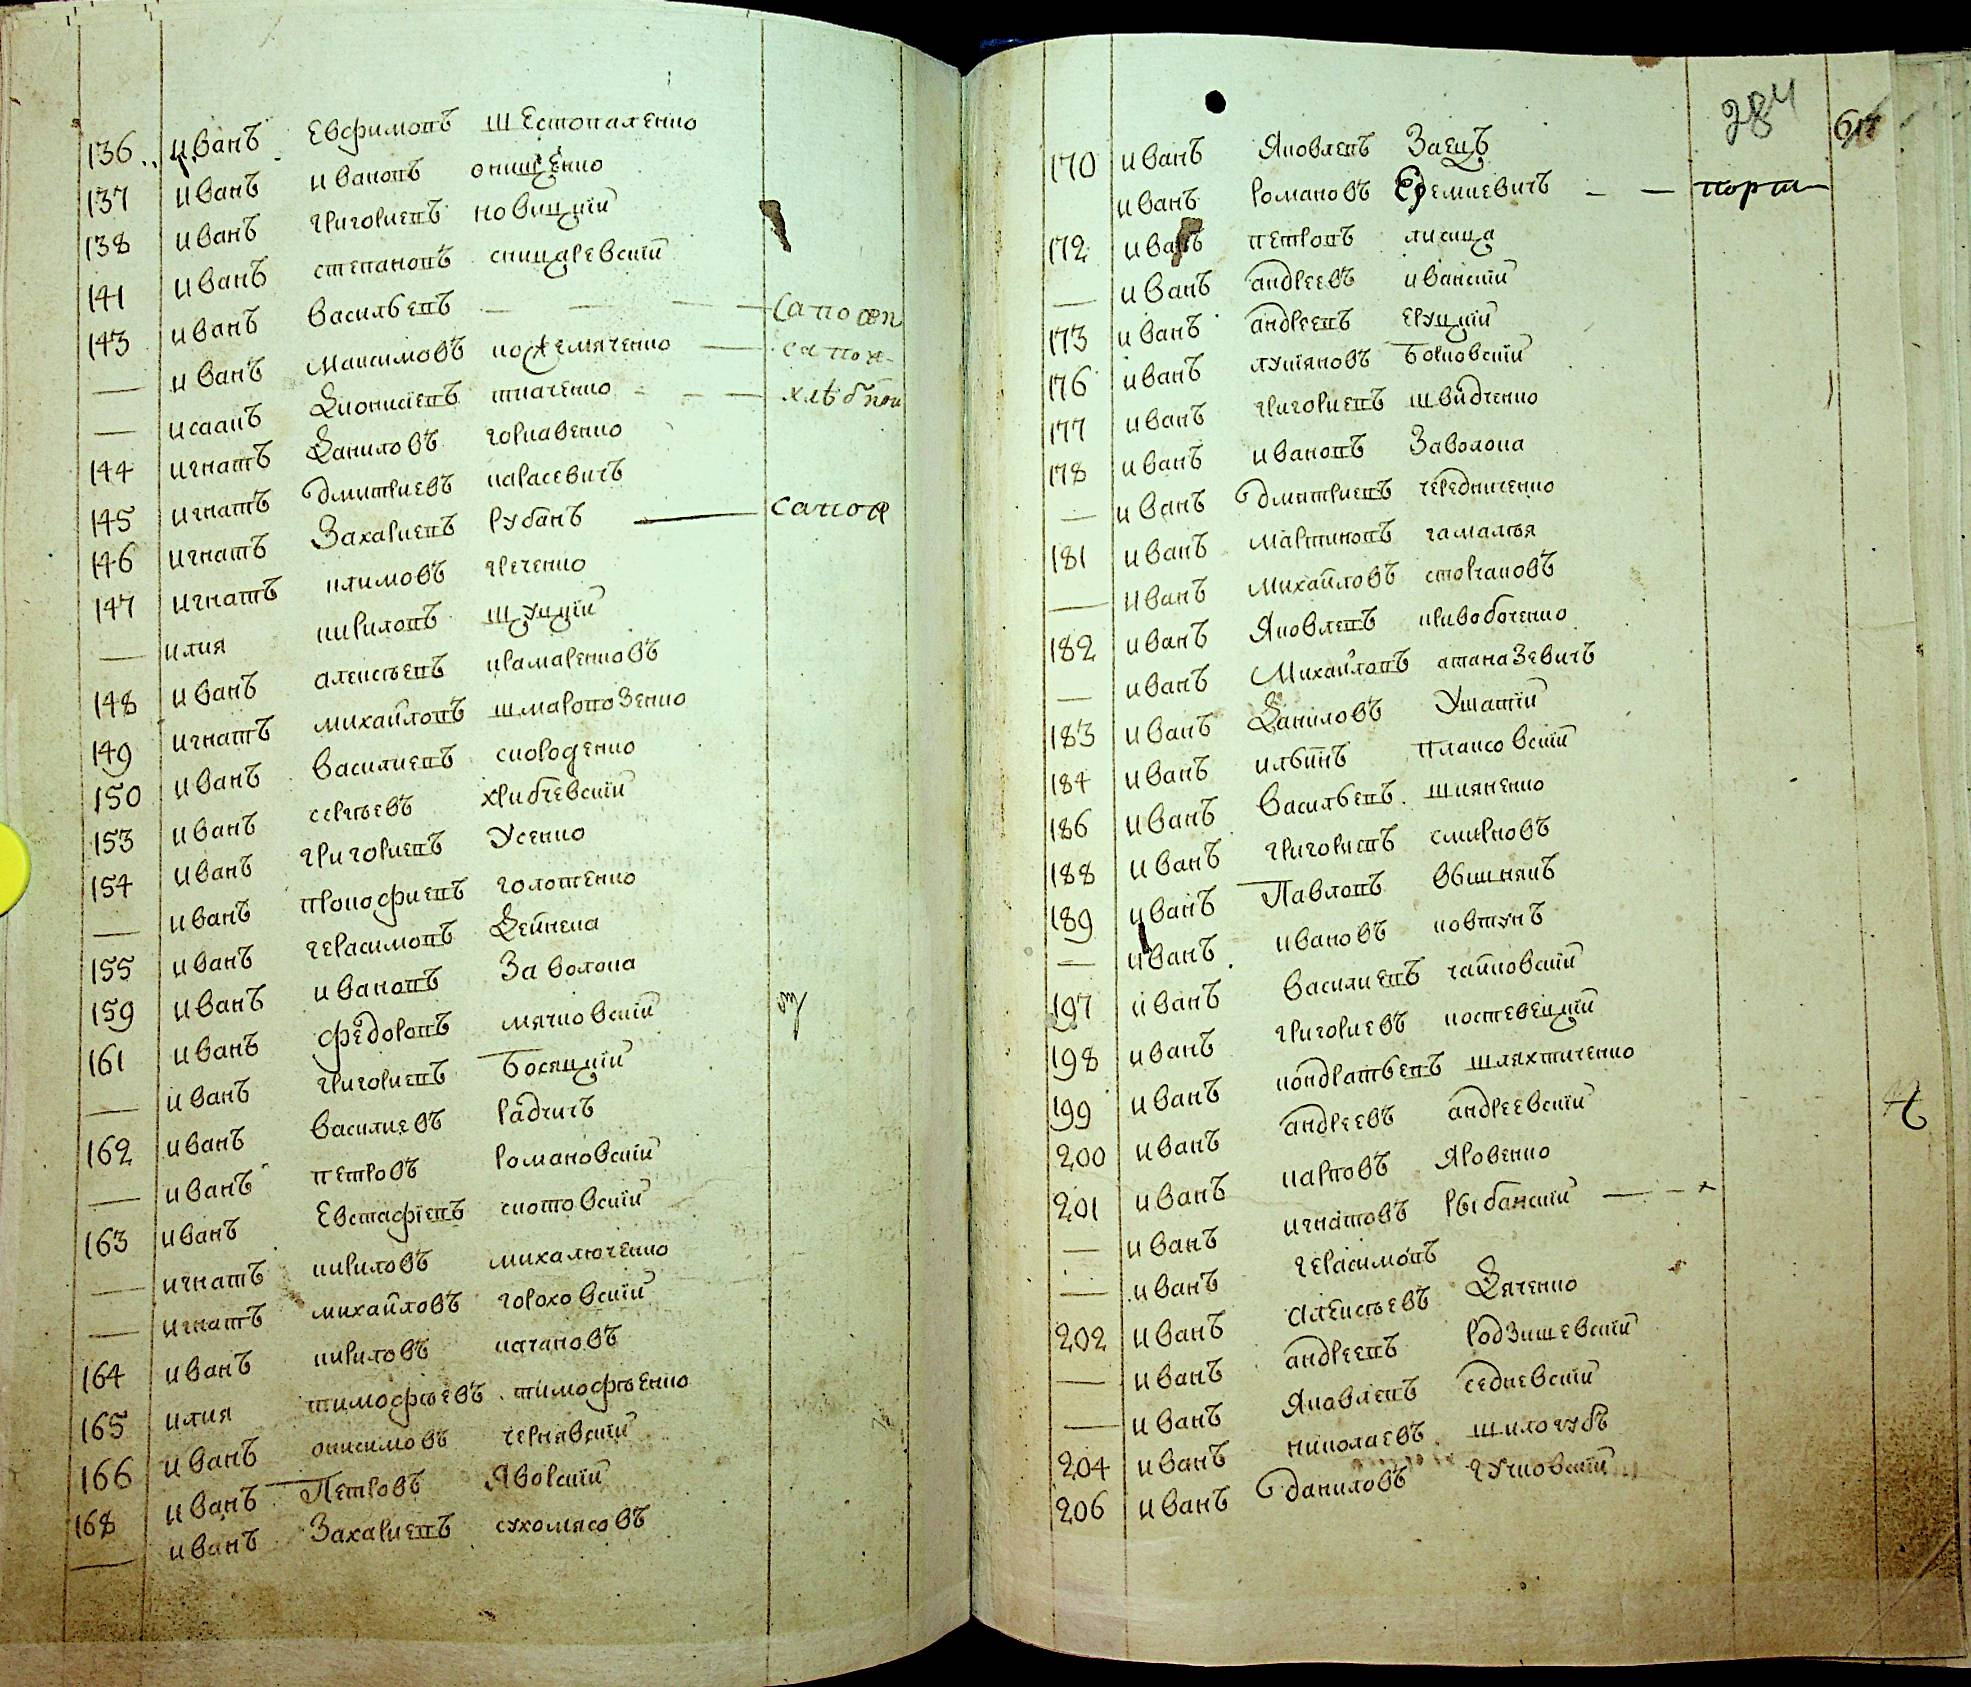 136 иванъ Евфимовъ шестопаленко
137 иванъ ивановъ онищенко
138 иванъ григориевъ новицкїй
141 иванъ степановъ сницаревскїй
143 иванъ васильевъ — — — сапож
— иванъ максимовъ кожемяченко — сапож
— исаакъ Дионисиевъ ткаченко - - — хлѣбной
144 игнатъ Даниловъ горкавенко
145 игнатъ дмитриевъ карасевичъ
146 игнатъ Захариевъ рубанъ — сапож
147 игнатъ климовъ греченко
— илия кириловъ шуцкїй
148 иванъ алексѣевъ крамаренковъ
149 игнатъ михайловъ шмаровозенко
150 иванъ василиевъ сководенко
153 иванъ сергѣевъ хрибчевскїй
154 иванъ григориевъ Усенко
— иванъ прокофиевъ голотенко
155 иванъ герасимовъ Дейнека
159 иванъ ивановъ Заволока
161 иванъ федоровъ мячковскїй
— иванъ григориевъ Босяцкїй
162 иванъ василиевъ радчичъ
— иванъ петровъ романовскїй
163 иванъ Евстафїевъ скотовскїй
— игнатъ кириловъ михалюченко
— игнатъ михайловъ гороховскїй
164 иванъ кириловъ качановъ
165 илия тимофѣевъ тимофѣенко
166 иванъ онисимовъ чернявскїй
168 иванъ Петровъ Яворскїй
— иванъ Захариевъ сухомясовъ
284
170 иванъ Яковлевъ Заецъ
иванъ романовъ Еремиевичъ — — порт
172 иванъ петровъ лисица
— иванъ андреевъ иванскїй
173 иванъ андреевъ ѣруцкїй
176 иванъ лукїановъ Борковскїй
177 иванъ григориевъ швидченко
178 иванъ ивановъ Заволока
— иванъ дмитриевъ чередниченко
181 иванъ мартиновъ гамалѣя
— иванъ михайловъ стовчановъ
182 иванъ Яковлевъ кривобоченко
— иванъ Михайловъ атаназевичъ
183 иванъ Даниловъ Ушатїй
184 иванъ ильинъ плаксовскїй
186 иванъ васильевъ шияненко
188 иванъ григориевъ смирновъ
189 иванъ Павловъ вьшнякъ
— иванъ ивановъ ковтунъ
197 иванъ василиевъ чайковскїй
198 иванъ григориевъ костевецкїй
199 иванъ кондратьевъ шляхтиченко
200 иванъ андреевъ андреевскїй
201 иванъ карповъ Яровенко
— иванъ игнатовъ рыбанскїй — -
— иванъ герасимовъ
202 иванъ Алексѣевъ Дяченко
— иванъ андреевъ родзишевскїй
— иванъ Яковлевъ седневскїй
204 иванъ николаевъ шилогубъ
206 иванъ даниловъ гучковскїй